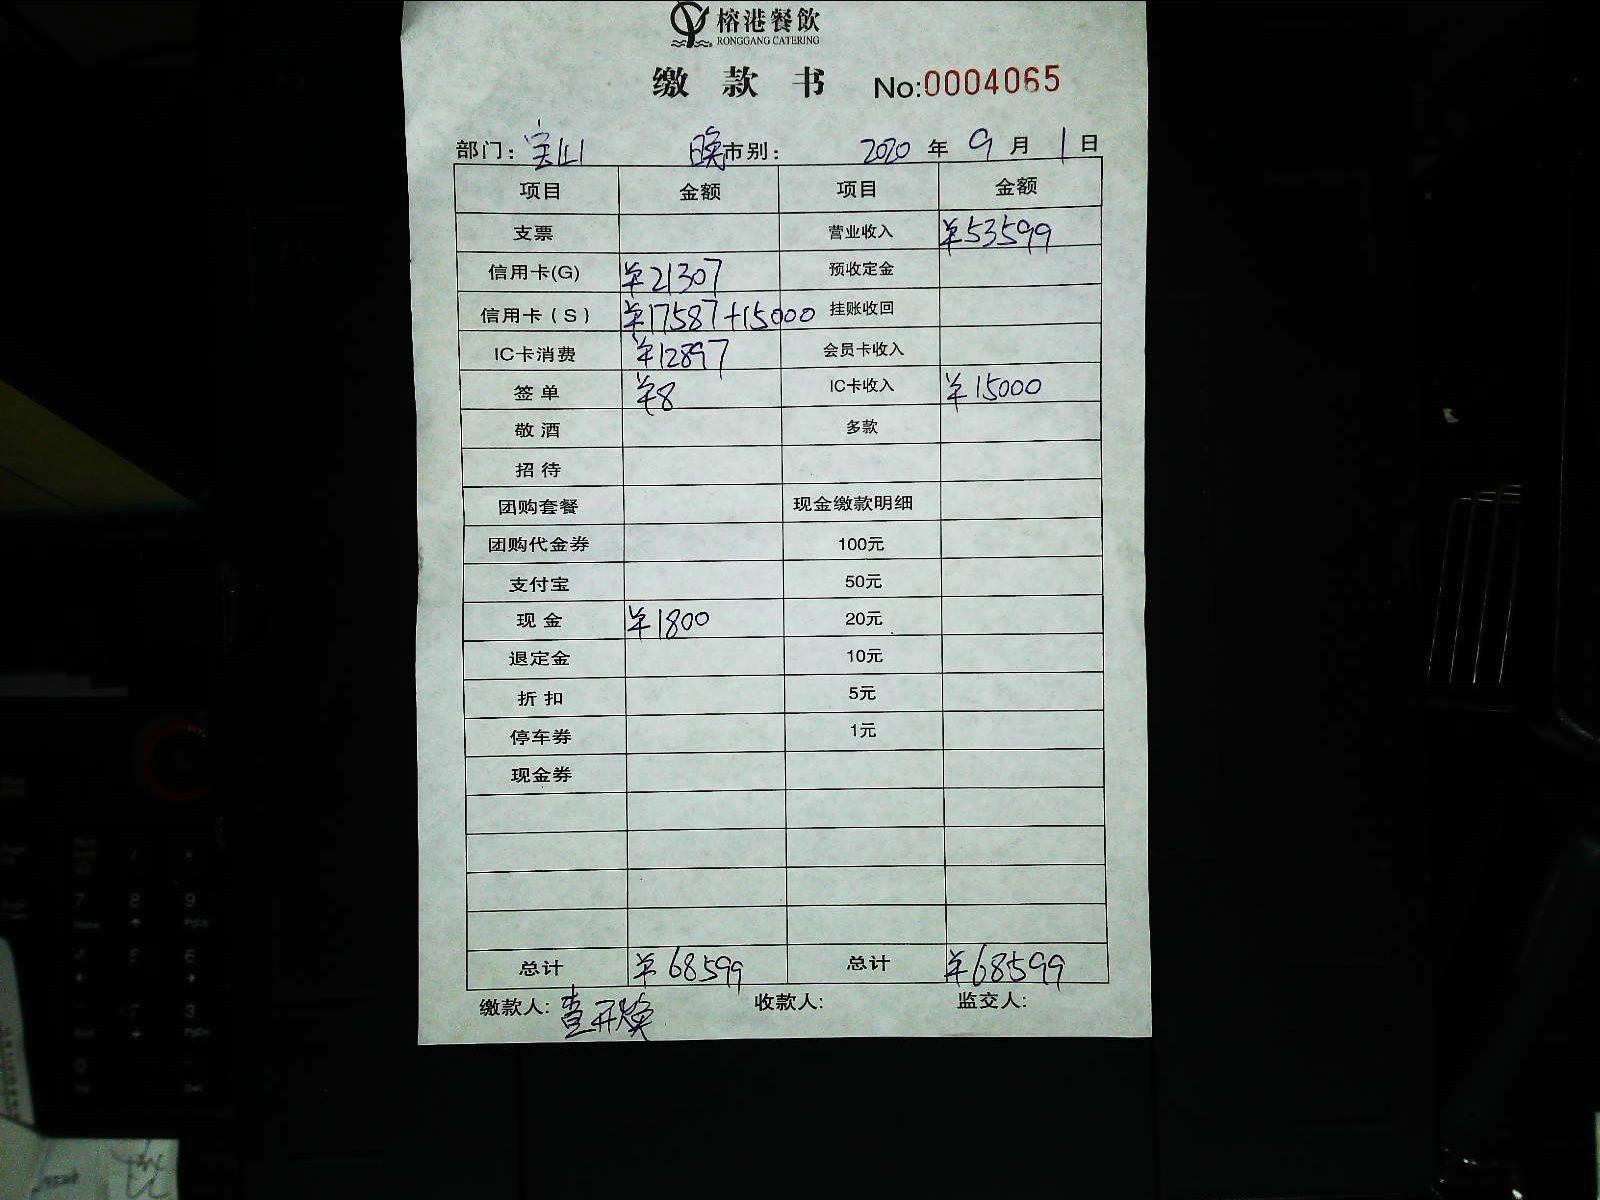 榕港餐飲
RONGGANG CATERING
缴款书 No:0004065
部门: 宝山 晚市别: 2020 年 9 月 1 日
项目 金额 项目 金额
支票 营业收入 ¥53599
信用卡(G) ¥21307 预收定金
信用卡(S) ¥17587+15000 挂账收回
IC卡消费 ¥12897 会员卡收入
签单 ¥8 IC卡收入 ¥15000
敬酒 多款
招待
团购套餐 现金缴款明细
团购代金券 100元
支付宝 50元
现金 ¥1800 20元
退定金 10元
折扣 5元
停车券 1元
现金券
总计 ¥68599 总计 ¥68599
缴款人: 收款人: 监交人: